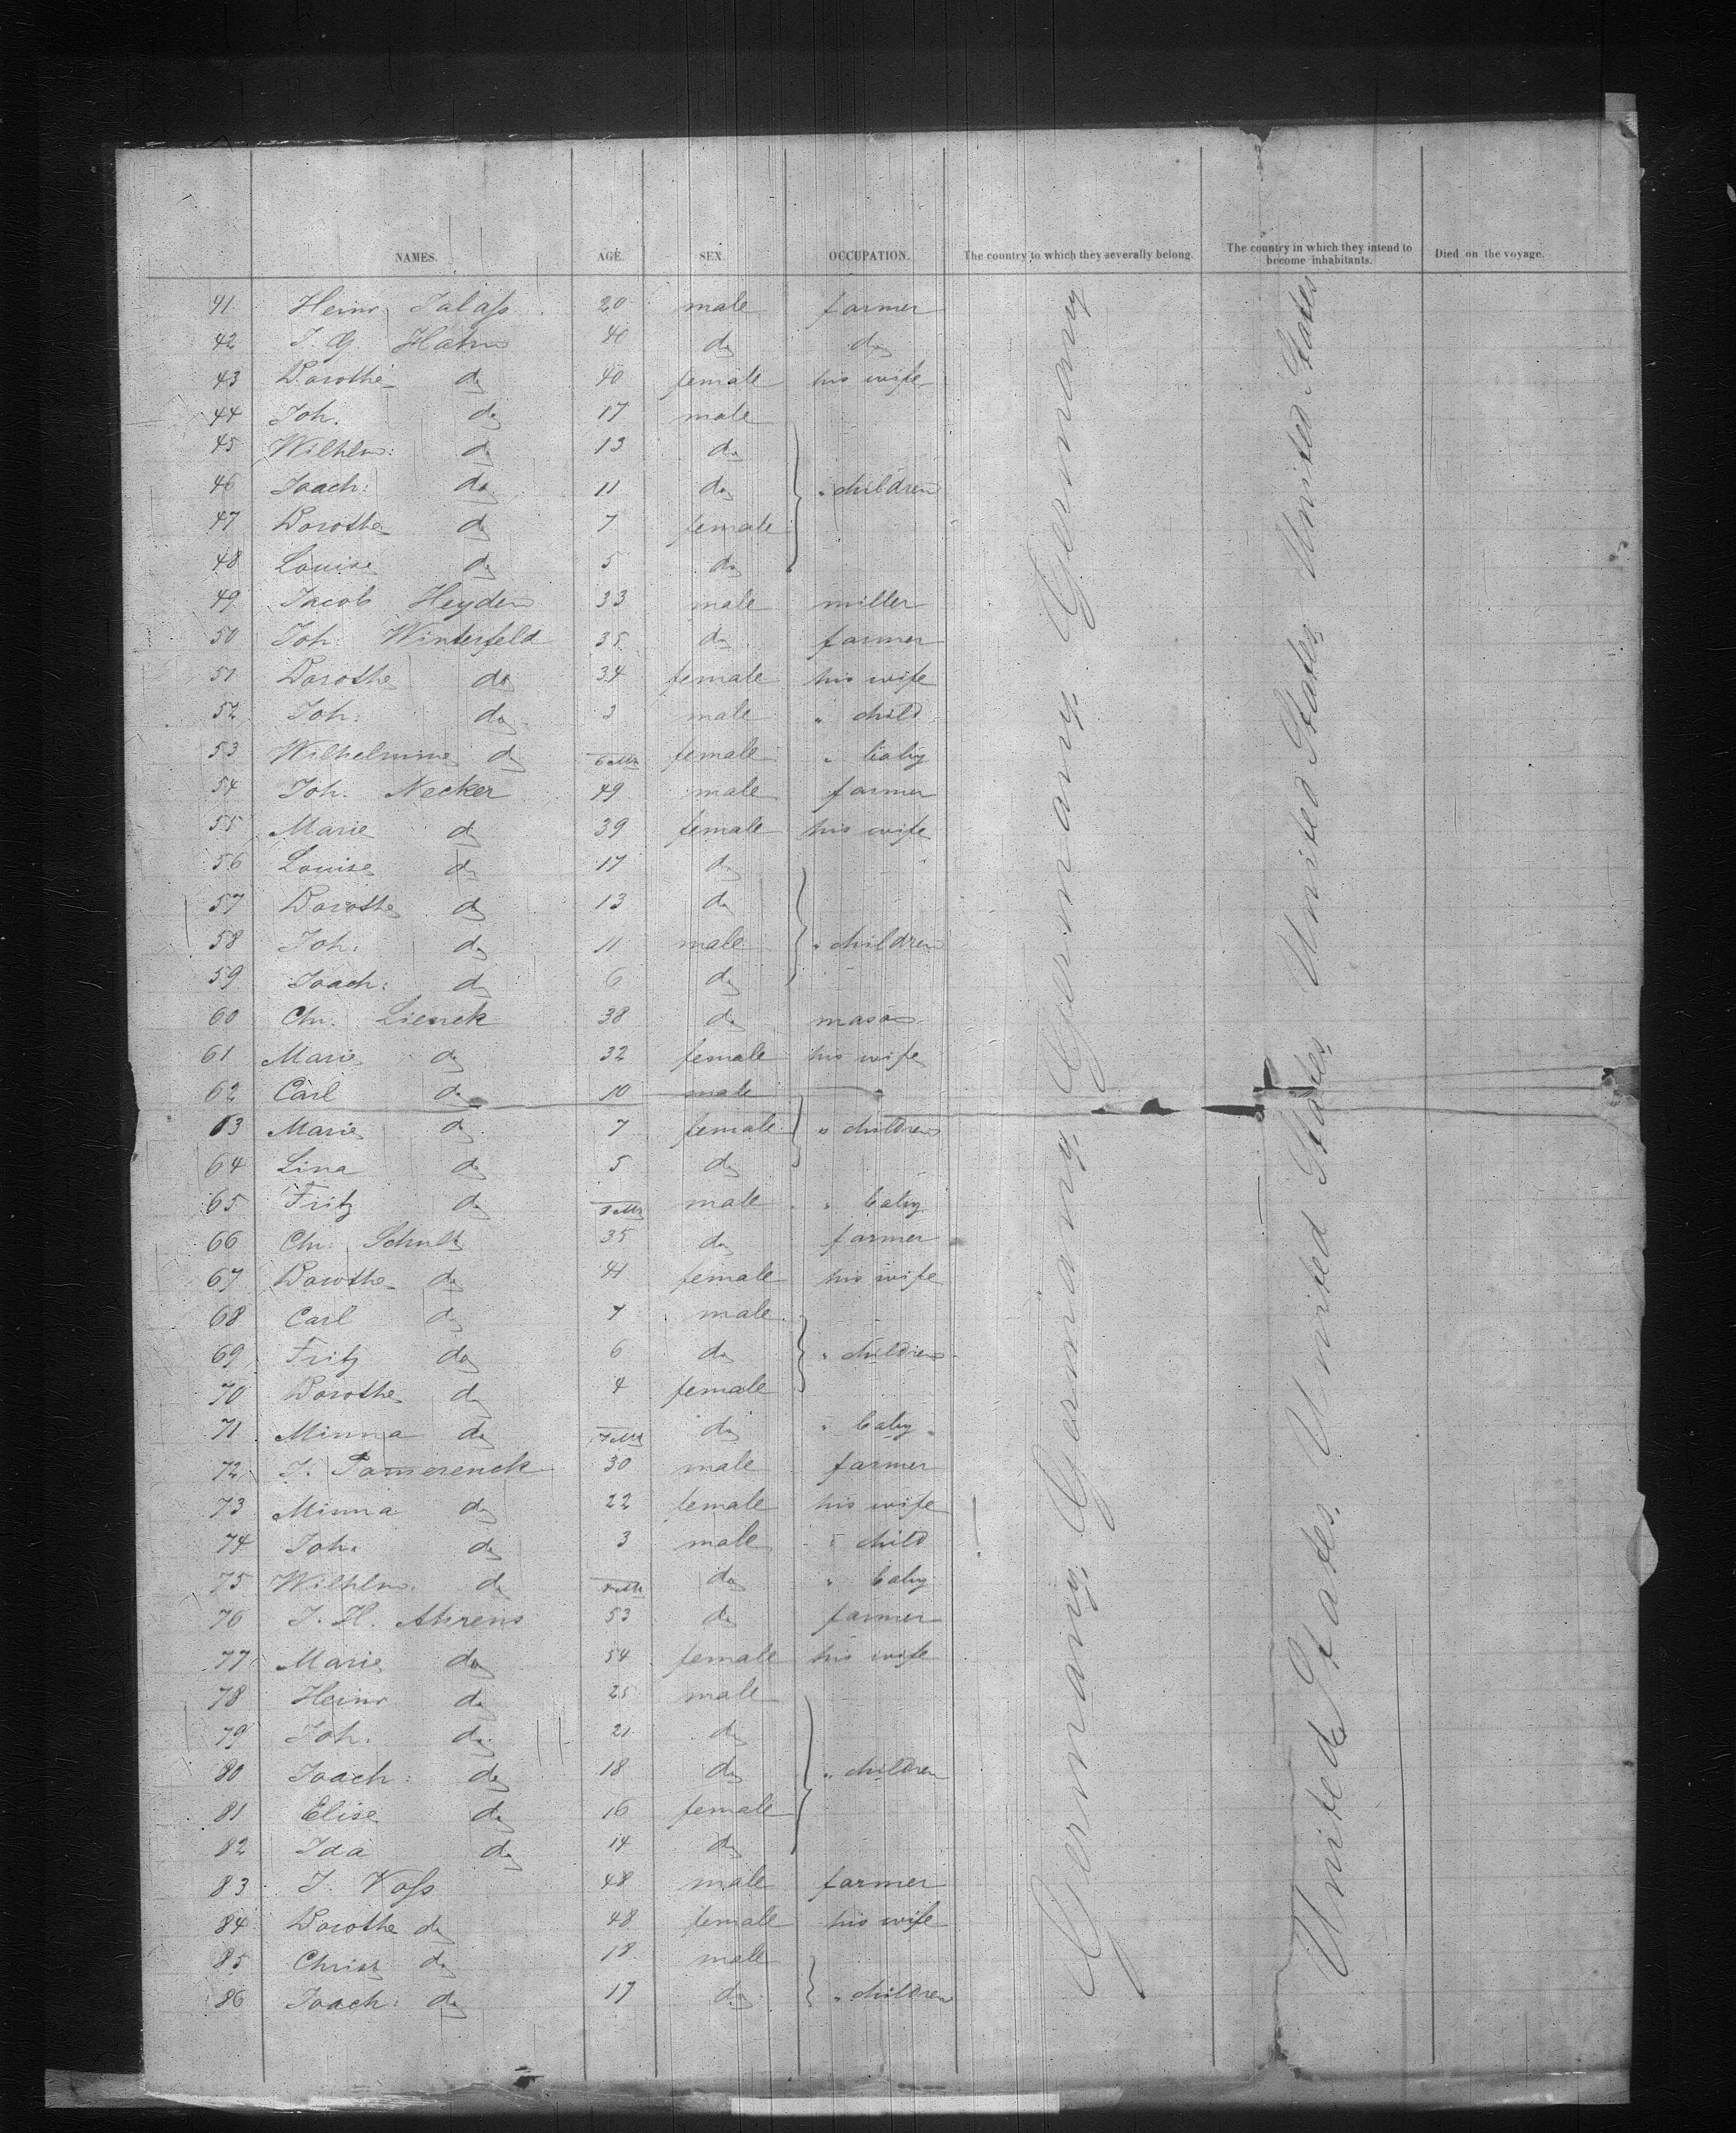 NAMES. AGE. SEX. OCCUPATION. The country to which they severally belong. The country in which they intend to become inhabitants. Died on the voyage.
41 Heinr Talaſs 20 male farmer
42 J. G. Hahn 40 do do
43 Dorothe do 40 female his wife
44 Joh. do 17 male
45 Wilhlm: do 13 do
46 Joach: do 11 do " children
47 Dorothe do 7 female
48 Louise do 5 do
49 Jacob Heyden 33 male miller
50 Joh: Winterfeld 35 do farmer
51 Dorothe do 34 female his wife
52 Joh: do 3 male " child
53 Wilhelmine do 6 Mts female " baby
54 Joh. Necker 49 male farmer
55 Marie do 39 female his wife
56 Louise do 17 do
57 Dorothe do 13 do
58 Joh: do 11 male " children
59 Joach: do 6 do
60 Chr. Lienck 38 do mason
61 Marie do 32 female his wife
62 Carl do 10 male
63 Marie do 7 female " children
64 Lina do 5 do
65 Fritz do male " baby
66 Chr: Schultz 35 do farmer
67 Dorothe do 41 female his wife
68 Carl do 7 male
69 Fritz do 6 do " children
70 Dorothe do 4 female
71 Minna do 7 Mts do " baby
72 J. Pamerenck 30 male farmer
73 Minna do 22 female his wife
74 Joh. do 3 male " child
75 Wilhlm. do do " baby
76 J. H. Ahrens 53 do farmer
77 Marie do 54 female his wife
78 Heinr do 25 male
79 Joh. do 21 do
80 Joach: do 18 do " children
81 Elise do 16 female
82 Ida do 14 do
83 J. Voſs 48 male farmer
84 Dorothe do 48 female his wife
85 Christ do 18 male
86 Joach: do 17 do " children
Germany, Germany, Germany, Germany, Germany
United States, United States, United States, United States